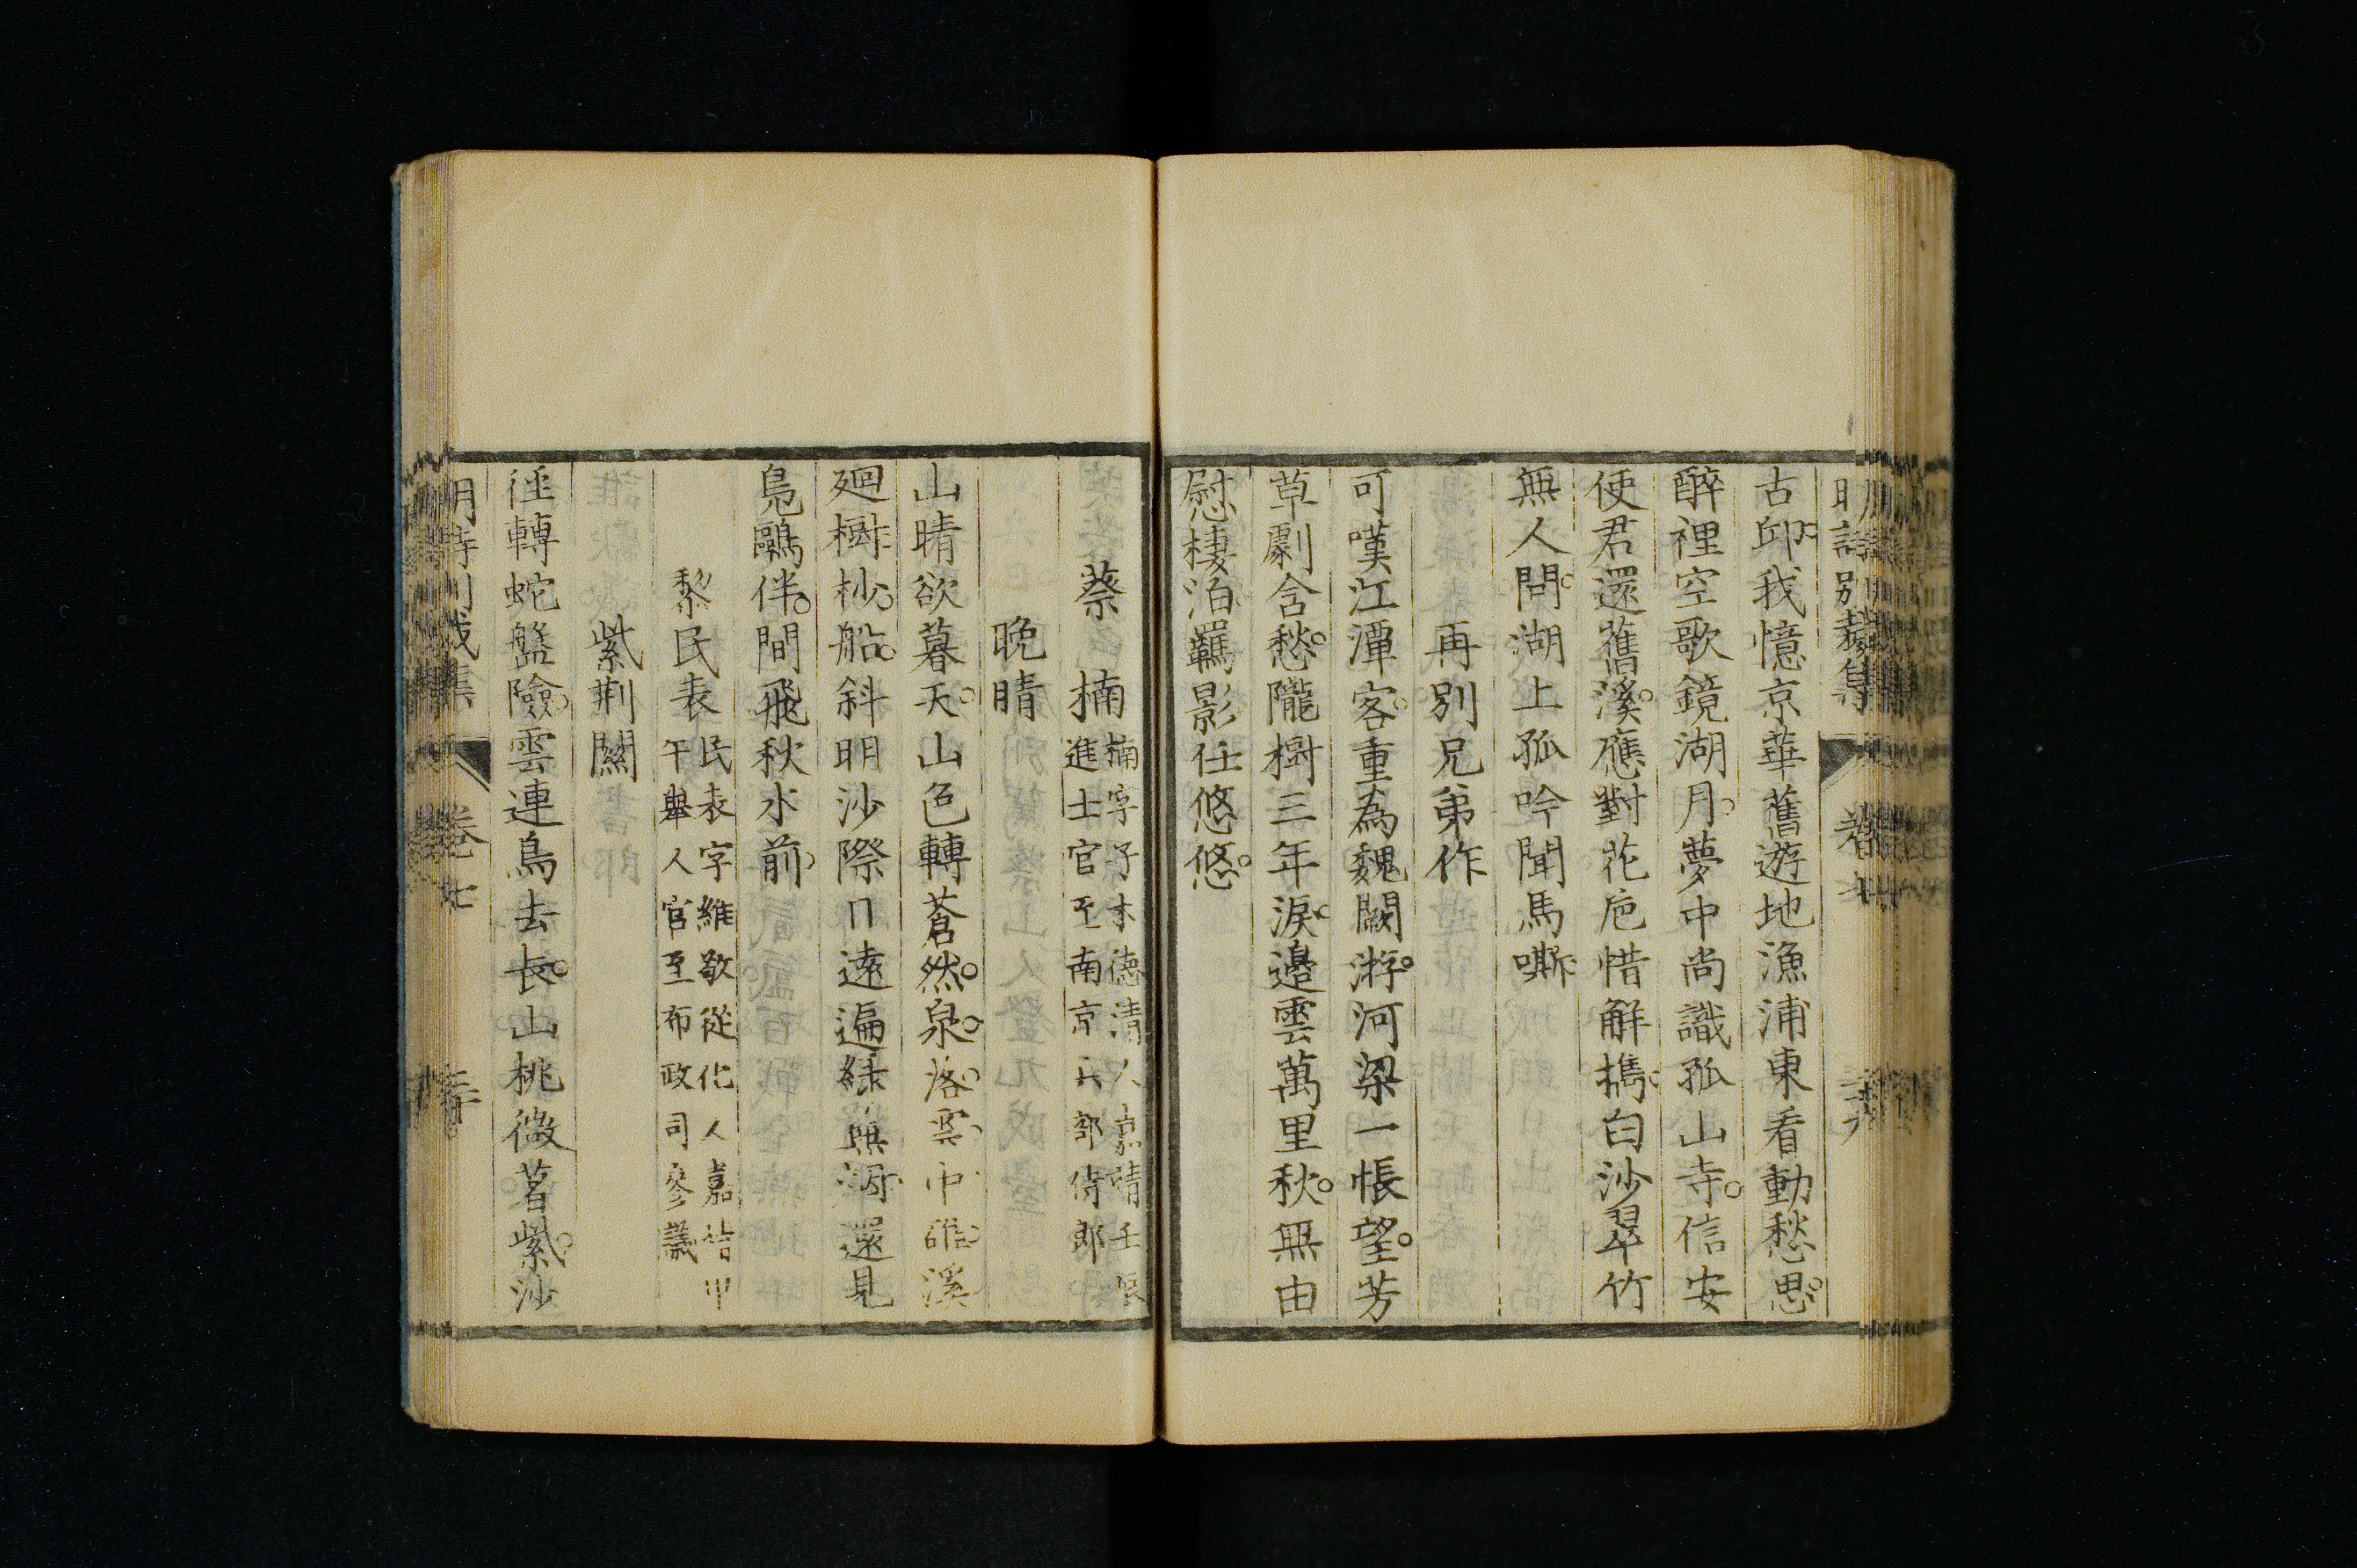 明詩別裁集 卷七
古邱我憶京華舊遊地漁浦東看動愁思
醉裡空歌鏡湖月夢中尚識孤山寺信安
使君還舊溪應對花巵惜解攜白沙翠竹
無人問湖上孤吟聞馬嘶
再別兄弟作
可嘆江潭客重為魏闕游河梁一悵望芳
草劇含愁隴樹三年淚邊雲萬里秋無由
慰棲泊羈影任悠悠
蔡 楠
楠字子木德清人嘉靖壬辰
進士官至南京工部侍郎
晚晴
山晴欲暮天山色轉蒼然泉落雲中碓溪
廻樹杪船斜明沙際遠遍綠無還見
鳧鷗伴間飛秋水前
黎民表
民表字維敬從化人嘉靖甲
午舉人官至布政司參議
紫荊關
徑轉蛇盤險雲連鳥去長山桃微著紫沙
明詩別裁集 卷七